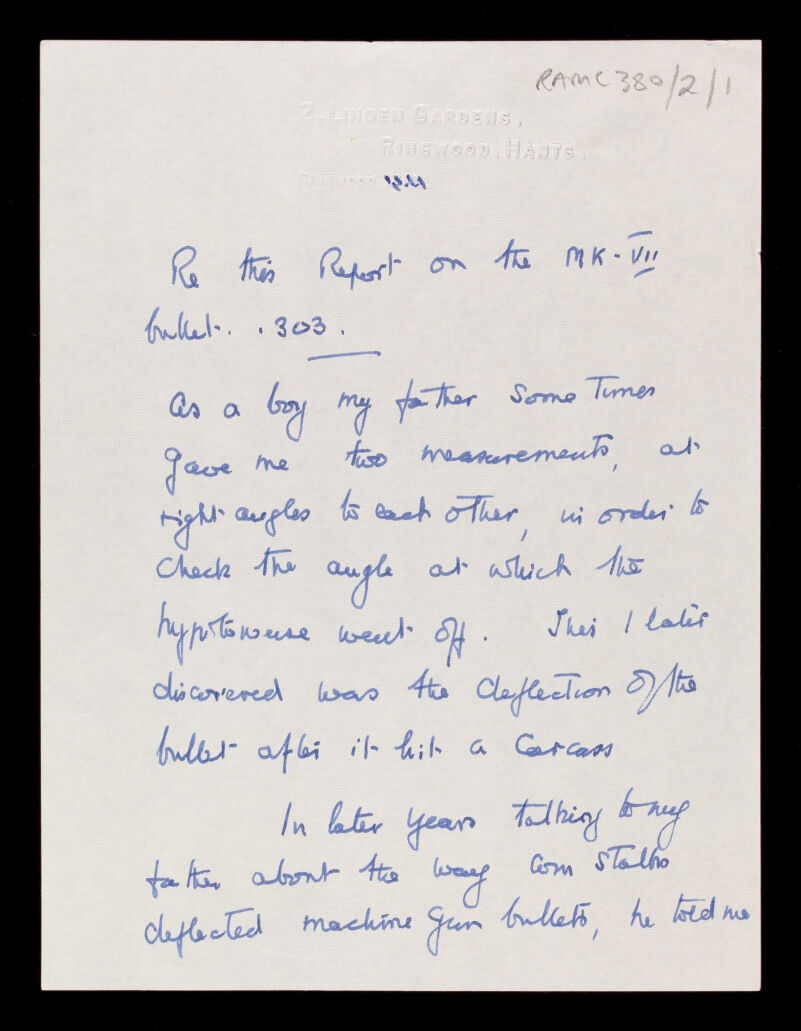 RAMC 380/2/1
2, LINDEN GARDENS,
RINGWOOD, HANTS,
RINGWOOD
Re this Report on the MK-VII
bullet. .303.
As a boy my father some Times
gave me two measurements, at
right angles to each other, in order to
check the angle at which the
hypotenuse went off. This I later
discovered was the deflection of the
bullet after it hit a Carcass
In later years talking to my
father about the way corn stalks
deflected machine gun bullets, he told me